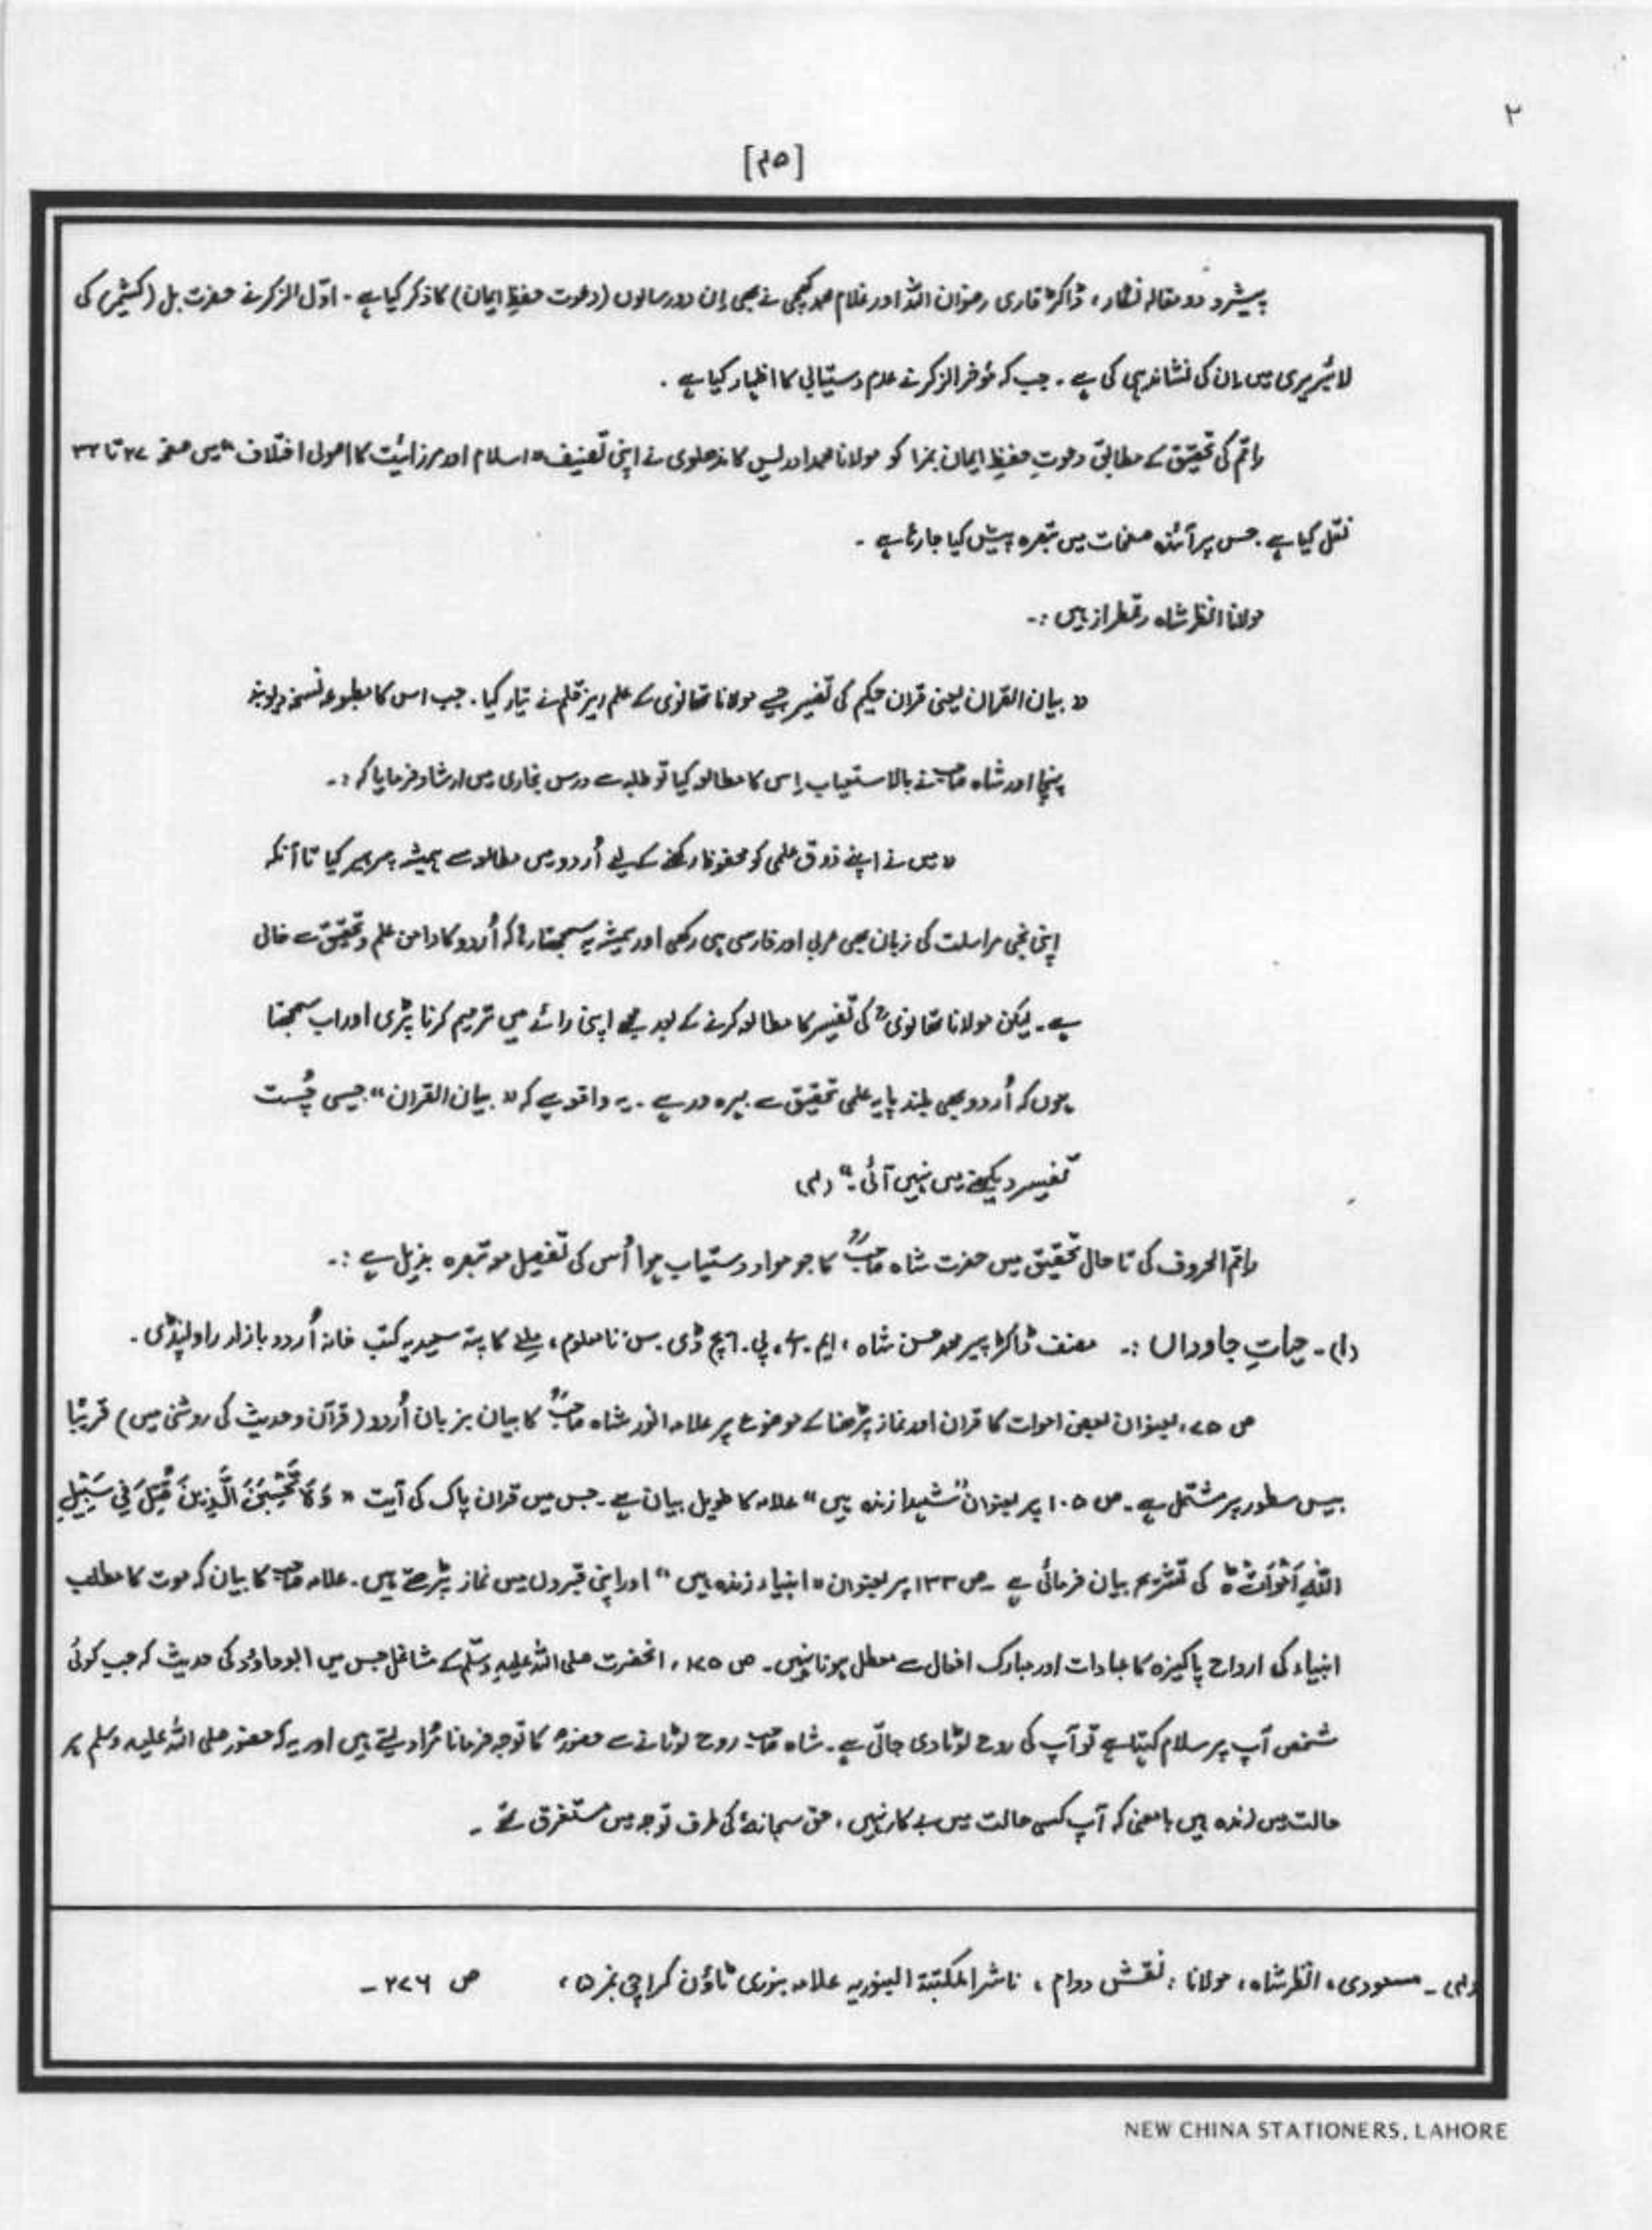 ۲
[۴۵]
پیشرو دو مقالہ نگار، ڈاکٹر قاری رضوان اللہ اور غلام محمد کچھی نے بھی اِن دو رسالوں (دعوت حفظِ ایمان) کا ذکر کیا ہے - اوّل الذکر نے حضرت بل (کشمیر) کی
لائبریری میں اِن کی نشاندہی کی ہے - جب کہ مؤخر الذکر نے عدم دستیابی کا اظہار کیا ہے .
راقم کی تحقیق کے مطابق دعوتِ حفظِ ایمان نمبر۱ کو مولانا محمد ادریس کاندھلوی نے اپنی تصنیف " اسلام اور مرزائیت کا اصولی اختلاف " میں صفحہ ۲۷ تا ۳۲
نقل کیا ہے . جس پر آئندہ صفحات میں تبصرہ پیش کیا جا رہا ہے -
مولانا انظر شاہ رقمطراز ہیں :-
" بیان القرآن یعنی قرآن حکیم کی تفسیر جسے مولانا تھانوی کے علم ریز قلم نے تیار کیا . جب اس کا مطبوعہ نسخہ دیوبند
پہنچا اور شاہ صاحب نے بالاستیعاب اِس کا مطالعہ کیا تو طلبہ سے درس بخاری میں ارشاد فرمایا کہ :-
" میں نے اپنے ذوق علمی کو محفوظ رکھنے کے لیے اُردو میں مطالعہ سے ہمیشہ پرہیز کیا تا آنکہ
اپنی نجی مراسلت کی زبان بھی عربی اور فارسی ہی رکھی اور ہمیشہ یہ سمجھتا رہا کہ اُردو کا دامن علم و تحقیق سے خالی
ہے - لیکن مولانا تھانوی ؒ کی تفسیر کا مطالعہ کرنے کے بعد مجھے اپنی رائے میں ترمیم کرنا پڑی اور اب سمجھتا
ہوں کہ اُردو بھی بلند پایہ علمی تحقیق سے بہرہ ور ہے - یہ واقعہ ہے کہ " بیان القرآن " جیسی چُست
تفسیر دیکھنے میں نہیں آئی -" (۱)
راقم الحروف کی تا حال تحقیق میں حضرت شاہ صاحبؒ کا جو مواد دستیاب ہوا اُس کی تفصیل مع تبصرہ بذیل ہے :-
(۱) - حیاتِ جاوداں :- مصنف ڈاکٹر پیر محمد حسن شاہ ، ایم . اے ، پی . ایچ ڈی . سن نامعلوم ، ملنے کا پتہ سعیدیہ کتب خانہ اُردو بازار راولپنڈی .
ص ۷۵ ، بعنوان بعض اموات کا قرآن اور نماز پڑھنا کے موضوع پر علامہ انور شاہ صاحبؒ کا بیان بزبان اُردو (قرآن و حدیث کی روشنی میں) قریبًا
بیس سطور پر مشتمل ہے - ص ۱۰۵ پر بعنوان " شہدا زندہ ہیں " علامہ کا طویل بیان ہے - جس میں قرآن پاک کی آیت " وَلَا تَحْسَبَنَّ الَّذِيْنَ قُتِلَ فِي سَبِيْلِ
اللّٰهِ اَمْوَاتًا ہ کی تشریح بیان فرمائی ہے - ص ۱۳۳ پر بعنوان " انبیاء زندہ ہیں " اور اپنی قبروں میں نماز پڑھتے ہیں - علامہ صاحب کا بیان کہ موت کا مطلب
انبیاء کی ارواح پاکیزہ کا عبادات اور مبارک افعال سے معطل ہونا نہیں - ص ۱۷۵ ، انحضرت صلی اللہ علیہ وسلّم کے مشاغل جس میں ابوداؤد کی حدیث کہ جب کوئی
شخص آپ پر سلام کہتا ہے تو آپ کی روح لوٹا دی جاتی ہے - شاہ صاحب روح لوٹانے سے حضورؐ کا توجہ فرمانا مُراد لیتے ہیں اور یہ کہ حضور صلی اللہ علیہ وسلم ہر
حالت میں زندہ ہیں بامعنی کہ آپ کسی حالت میں بے کار نہیں ، حق سبحانہٗ کی طرف توجہ میں مستغرق تھے -
(۱) - مسعودی ، انظر شاہ ، مولانا : نقش دوام ، ناشر المکتبۃ البنوریہ علامہ بنوری ٹاؤن کراچی نمبر ۵ ، ص ۲۷۶ -
NEW CHINA STATIONERS, LAHORE